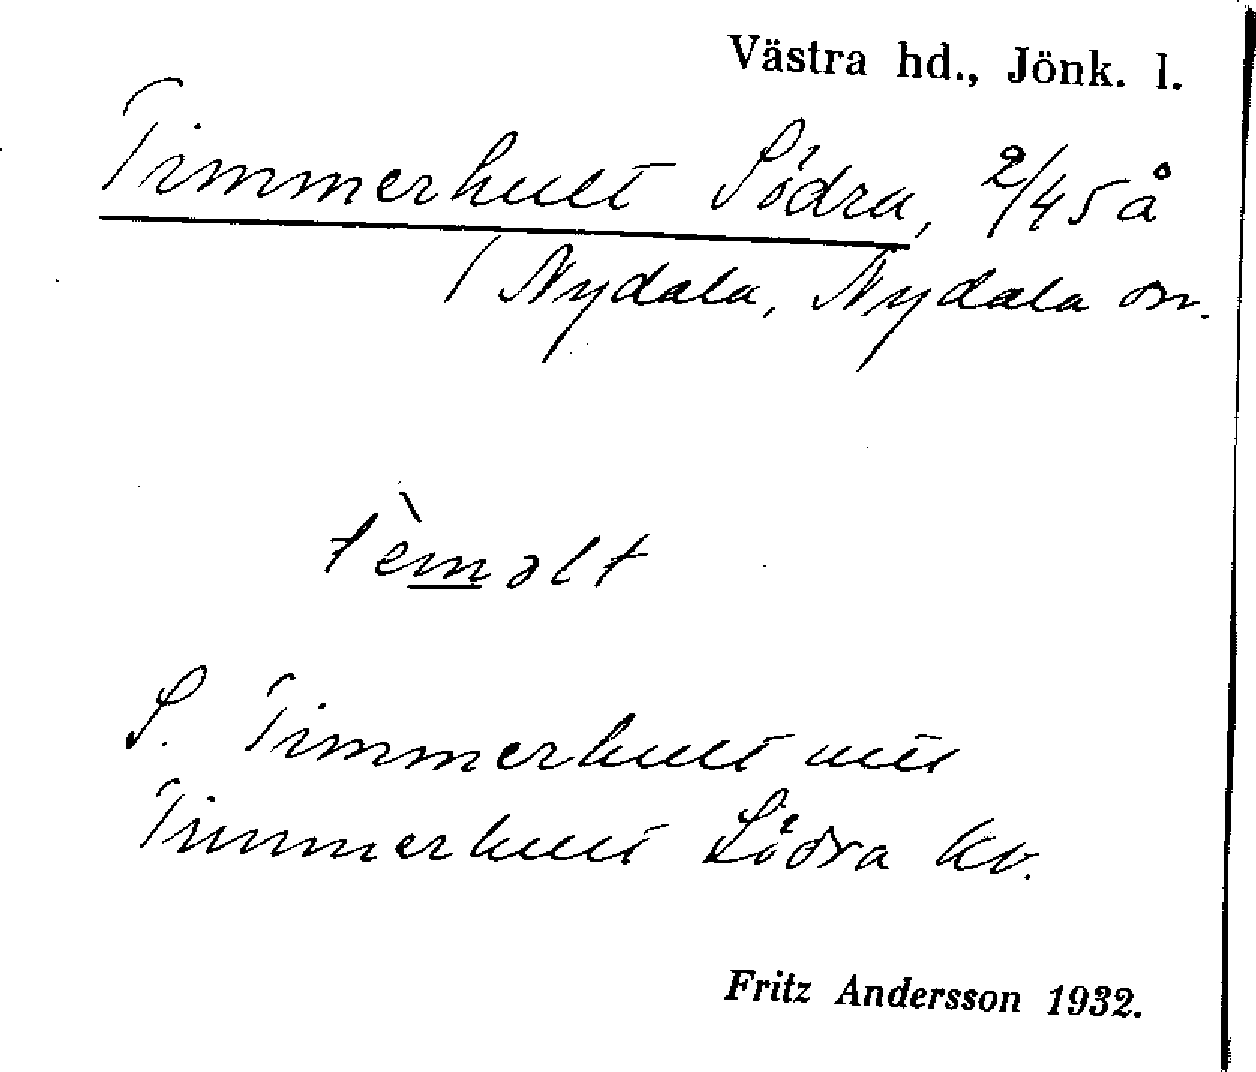 Västra hd., Jönk. l.
Timmerhult Södra, 2/45 å
1 Nydala, Nydala sn.
tèmalt
S. Timmerhult
Timmerhult Södra kv.
Fritz Andersson 1932.